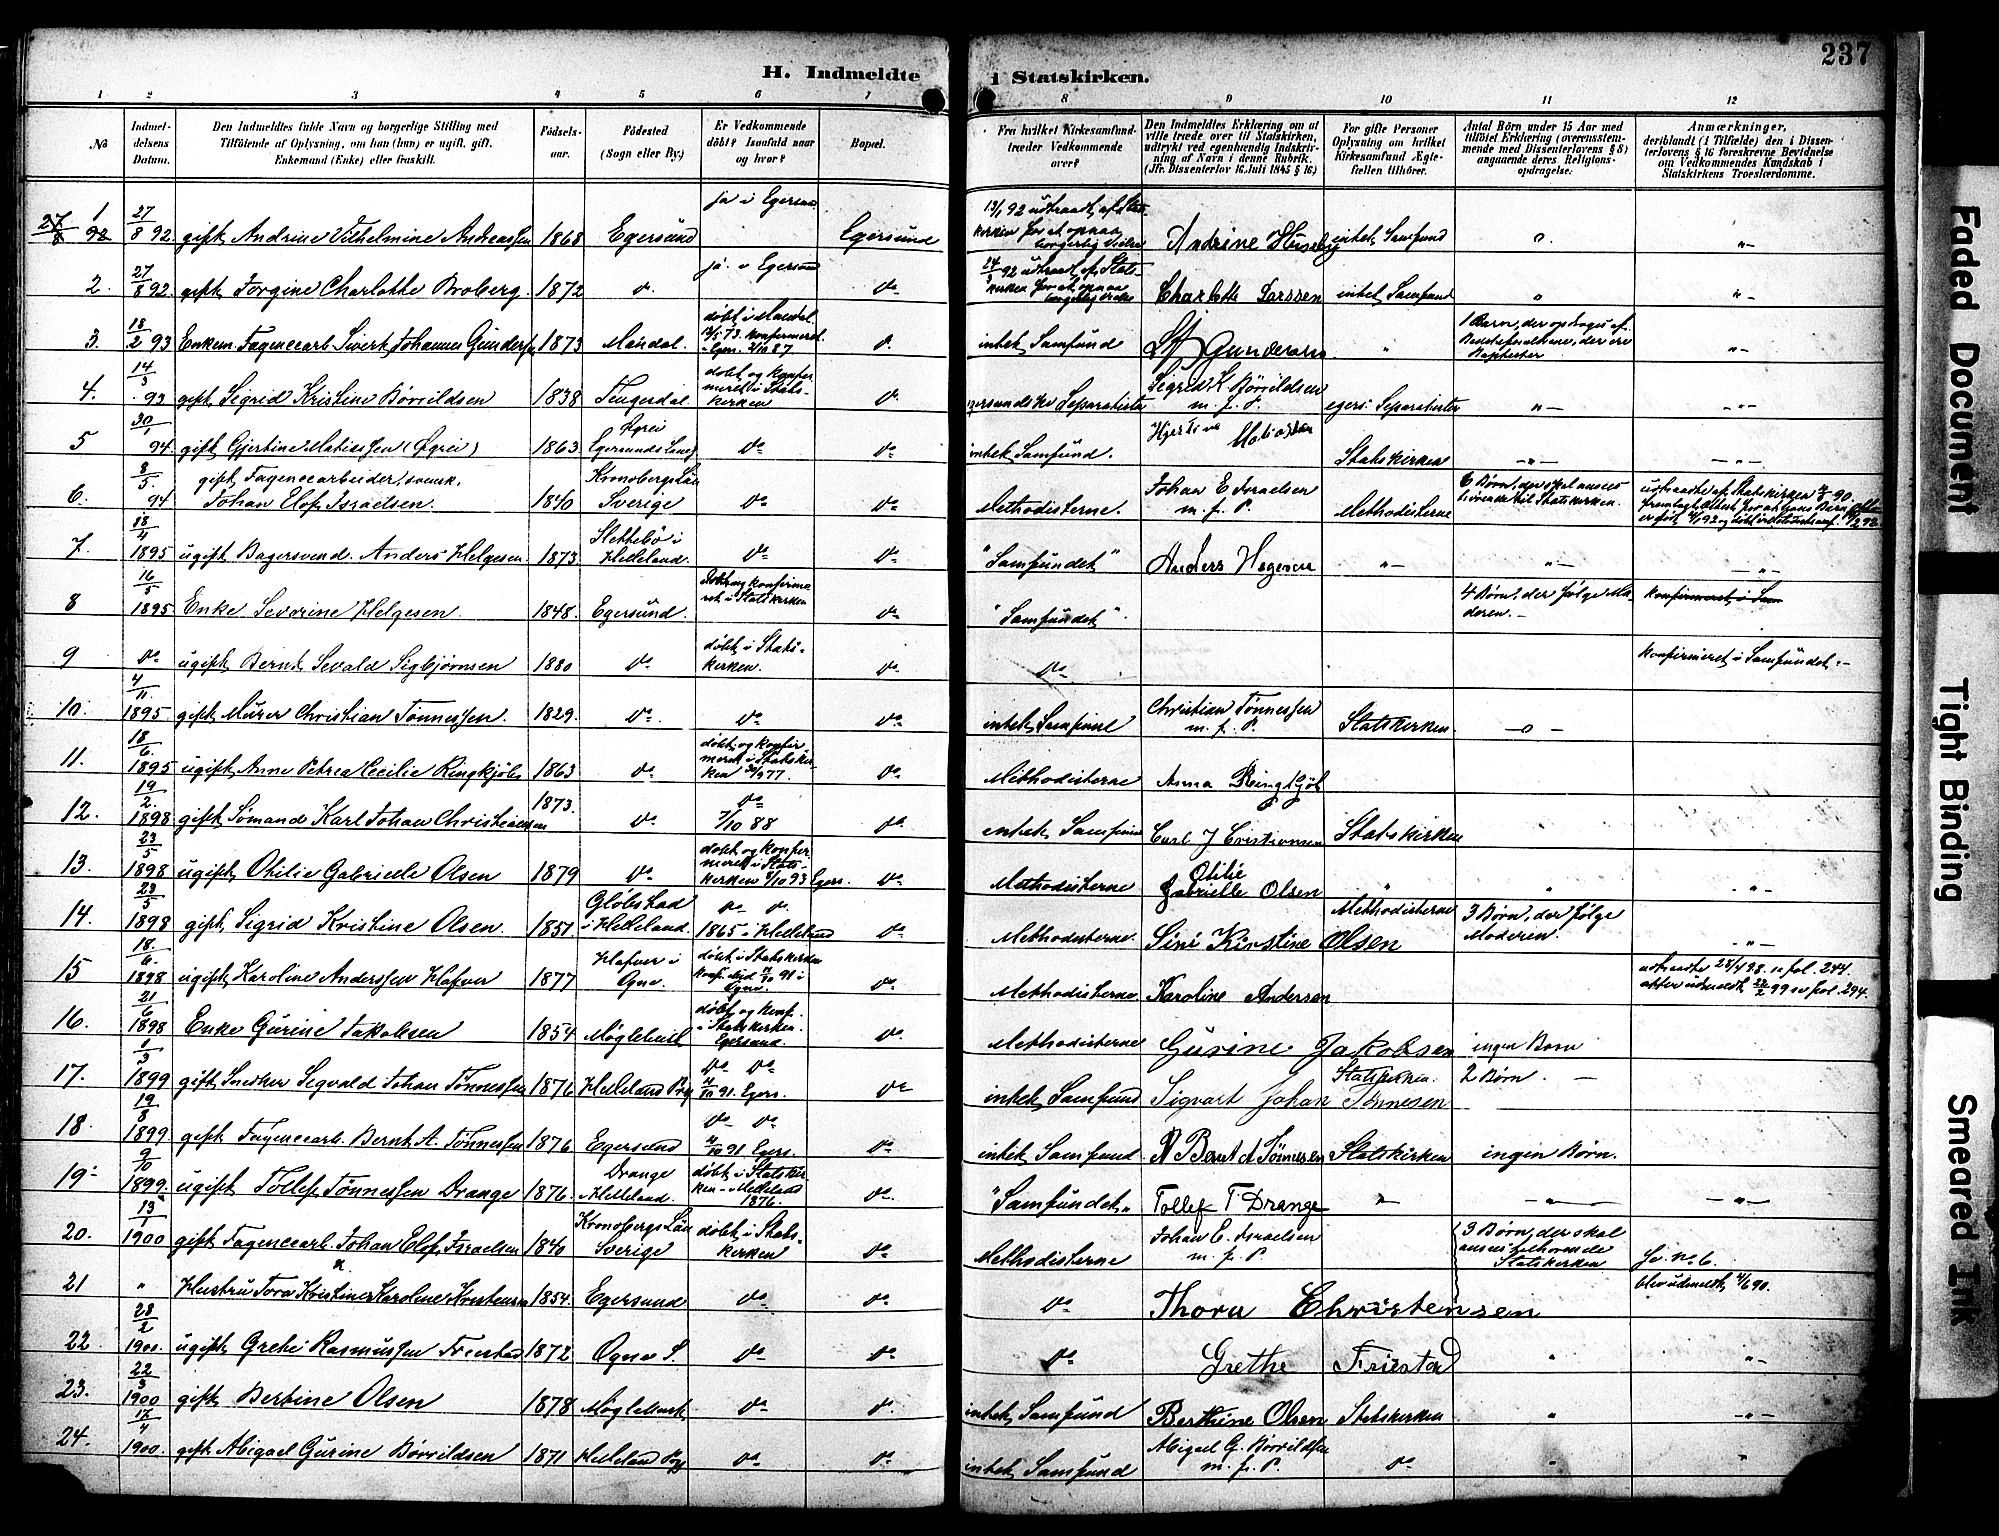 237
H. Indmeldte i Statskirken.
1 2 3 4 5 6 7 8 9 10 11 12
No
Indmel-
delsens
Datum.
Den Indmeldtes fulde Navn og borgerlige Stilling med
Tilföiende af Oplysning, om han (hun) er ugift, gift,
Enkemand (Enke) eller fraskilt.
Födsels-
aar.
Födested
(Sogn eller By.)
Er Vedkommende
döbt? Isaafald naar
og hvor?
Bopæl.
Fra hvilket Kirkesamfund
træder Vedkommende
over?
Den Indmeldtes Erklæring om at
ville træde over til Statskirken,
udtrykt ved egenhændig Indskriv-
ning af Navn i denne Rubrik.
(Jfr. Dissenterlov 16 Juli 1845 § 16.)
For gifte Personer
Oplysning om hvilket
Kirkesamfund Ægte-
fællen tilhörer.
Antal Börn under 15 Aar med
tilföiet Erklæring (overensstem-
mende med Dissenterlovens § 8)
angaaende deres Religions-
opdragelse.
Anmærkninger,
deriblandt (i Tilfælde) den i Dissen-
terlovens § 16 foreskrevne Bevidnelse
om Vedkommendes Kundskab i
Statskirkens Troeslærdomme.
1 27/8 92 gift Andrine Vilhelmine Andreassen 1868 Egersund ja i Egersund Egersund 13/1 92 udtraadt af Stats-
kirken for at opnaa
borgerlig Vielse Andrine Huseby intet Samfund 0. "-
2. 27/8 92. gift Torgine Charlotte Broberg. 1872 do. ja i Egersund do 92 udtraadt af Stats-
kirken for at opnaa
borgerlig Vielse Charlotte Larssen intet Samfund " "-
3. 18/2 93 Enkem. Fagencearb. Sivert Johannes Gundersen 1873 Mandal. döbt i Mandal
73. konfirmeret
i Eger. 2/10 87 do. intet Samfund Gundersen " 1 Barn, der opdrages af
Bedsteforældrene, der ere
Baptister "-
4. 14/3 93 gift Sigrid Kristine Børrildsen 1838 Tengerdal döbt og konfir
meret i Stats-
kirken do. egersundske Separatister Sigrid K Børrildsen
m. f. P. egers. Separatister "- -"-
5 30/1 94. gift Gjertine Matiassen (Øgrei) 1863 Øgrei
Egersunds Landss. do do intet Samfund. Statskirken -"- -"-
6. 8/5 94 gift Fagencearbeider, svensk,
Johan Elof Israelsen. 1840 Kronobergs Län
Sverige do do Methodisterne. Johan E Israelsen
m. f. P. Methodisterne 6 Børn, der skal ansees
hörende til Statskirken.
7. 18/4 1895 ugift Bagersvend. Anders Helgesen. 1873 Slettebö i
Helleland. do do "Samfundet" Anders "- "- -"-
8 16/5 1895 Enke Severine Helgesen. 1848. Egersund. döbt og konfirme
ret i Statskirken do "Samfundet". 4 Børn, der følge Mo-
deren. - konfirmeret i Sam
9 do ugift Bernt Sevald Sigbjørnsen 1880 do döbt i Stats-
kirken. do do konfirmeret i Samfundet. -
10. 4/11. 1895 gift Murer Christian Tønnessen. 1829. do do do intet Samfund Christian Tønnessen
m. f. P. Statskirken -0-
11. 18/6. 1895 ugift Anne Petrea Cecilie Ringkjøb 1863 do döbt og konfir
meret i Statskir
ken 77. do Methodisterne Anna Ringkjöb
12. 19/2. 1898 gift Sømand Karl Johan Christiansen 1873. do do
7/10 88 do intet Samfund Carl J Cristiansen Statskirken
13. 23/5 1898 ugift Othilie Gabrielle Olsen 1879 do döbt og konfir
meret i Stats-
kirken 8/10 93 Egers. do Methodisterne Otilie
Gabrielle Olsen " " "-
14. 23/5 1898 gift Sigrid Kristine Olsen. 1851 Gløbstad
i Helleland. do do
1865 i Helleland do Methodisterne. Sini Kirstine Olsen Methodisterne 3 Børn, der følge
Moderen. "-
15 18/6. 1898 ugift Karoline Anderssen Hafver 1877 Hafver i
Ogne döbt i Statskirken
91 i
Egers. do Methodisterne Karoline Andersen udtraadte 28/4 98. fol. 244.
atter udmeldt 99 fol. 294.
16. 21/6 1898 Enke Gurine Jakobsen 1854 Møgletveit döbt og konf.
i Statskirken.
Egersund. do Methodisterne Gurine Jakobsen ingen Børn
17. 1/3 1899 gift Snedker Sigvald Johan Tønnessen 1876 Helleland do do
91. Egers. do intet Samfund Sigvart Johan Tønnesen Statskirken. 2 Børn. -
18. 19/8 1899 gift Fagencearb. Bernt A. Tønnessen 1876 Egersund do do
91 Egers. do intet Samfund. Bernt A Tønnesen Statskirken ingen Børn.
19. 9/10 1899. ugift Tollef Tønnessen Drange 1876. Drange
i Helleland. döbt i Statskir
ken i Helleland
1876. do "Samfundet" Tollef T Drange "- -"- -"-
20. 13/1 1900 gift Fagencearb. Johan Elof Israelsen 1840 Kronobergs Län
Sverige döbt i Stats-
kirken do Methodisterne Johan E. Israelsen
m. f. P. 3 Børn, der skal
ansees tilhørende
Statskirken Jfr. No 6.
21 " Hustru Tora Kristine Karoline Kristensen 1854. Egersund do do do Thora Christensen blev udmeldt 90.
22. 28/2 1900. ugift Grethe Rasmussen Friestad 1872 Ogne S. do do do Grethe Friestad " "-
23. 22/3 1900 gift Bertine Olsen 1878 do do intet Samfund Berthine Olsen Statskirken " "-
24. 17/4 1900. gift Abigael Gurine Børrildsen 1871 Helleland do do intet Samfund Abigael G. Børrildsen
m. f. P. do " "
Faded Document
Tight Binding
Smeared Ink